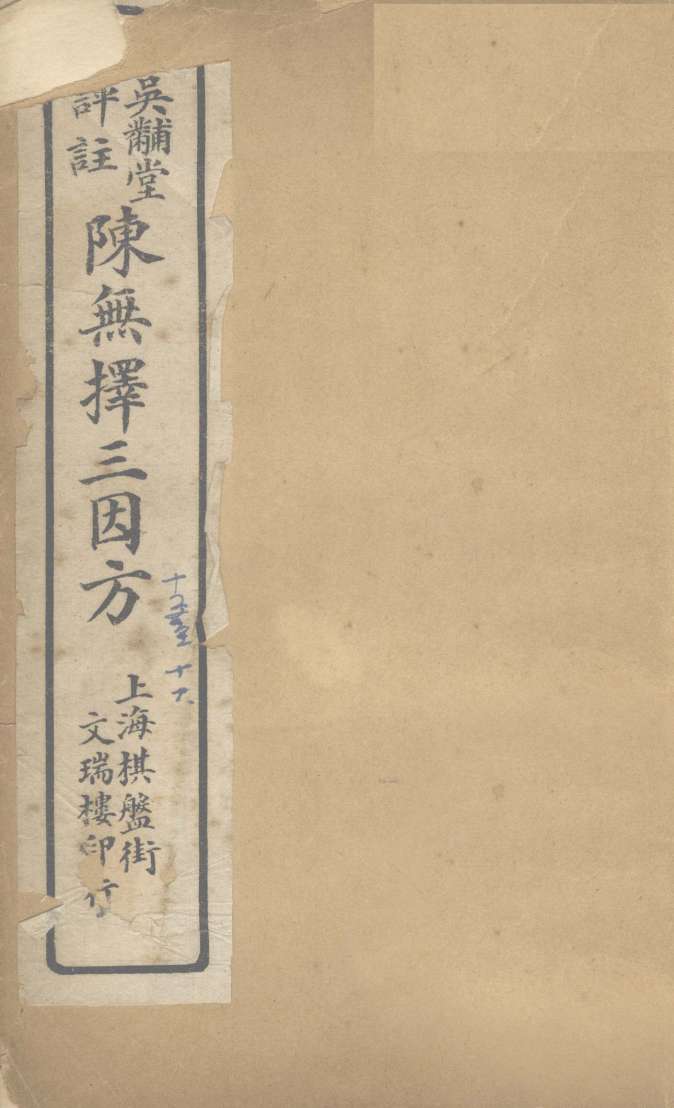 吳黼堂
評註
陳無擇三因方
十五至十八
上海棋盤街
文瑞樓印行